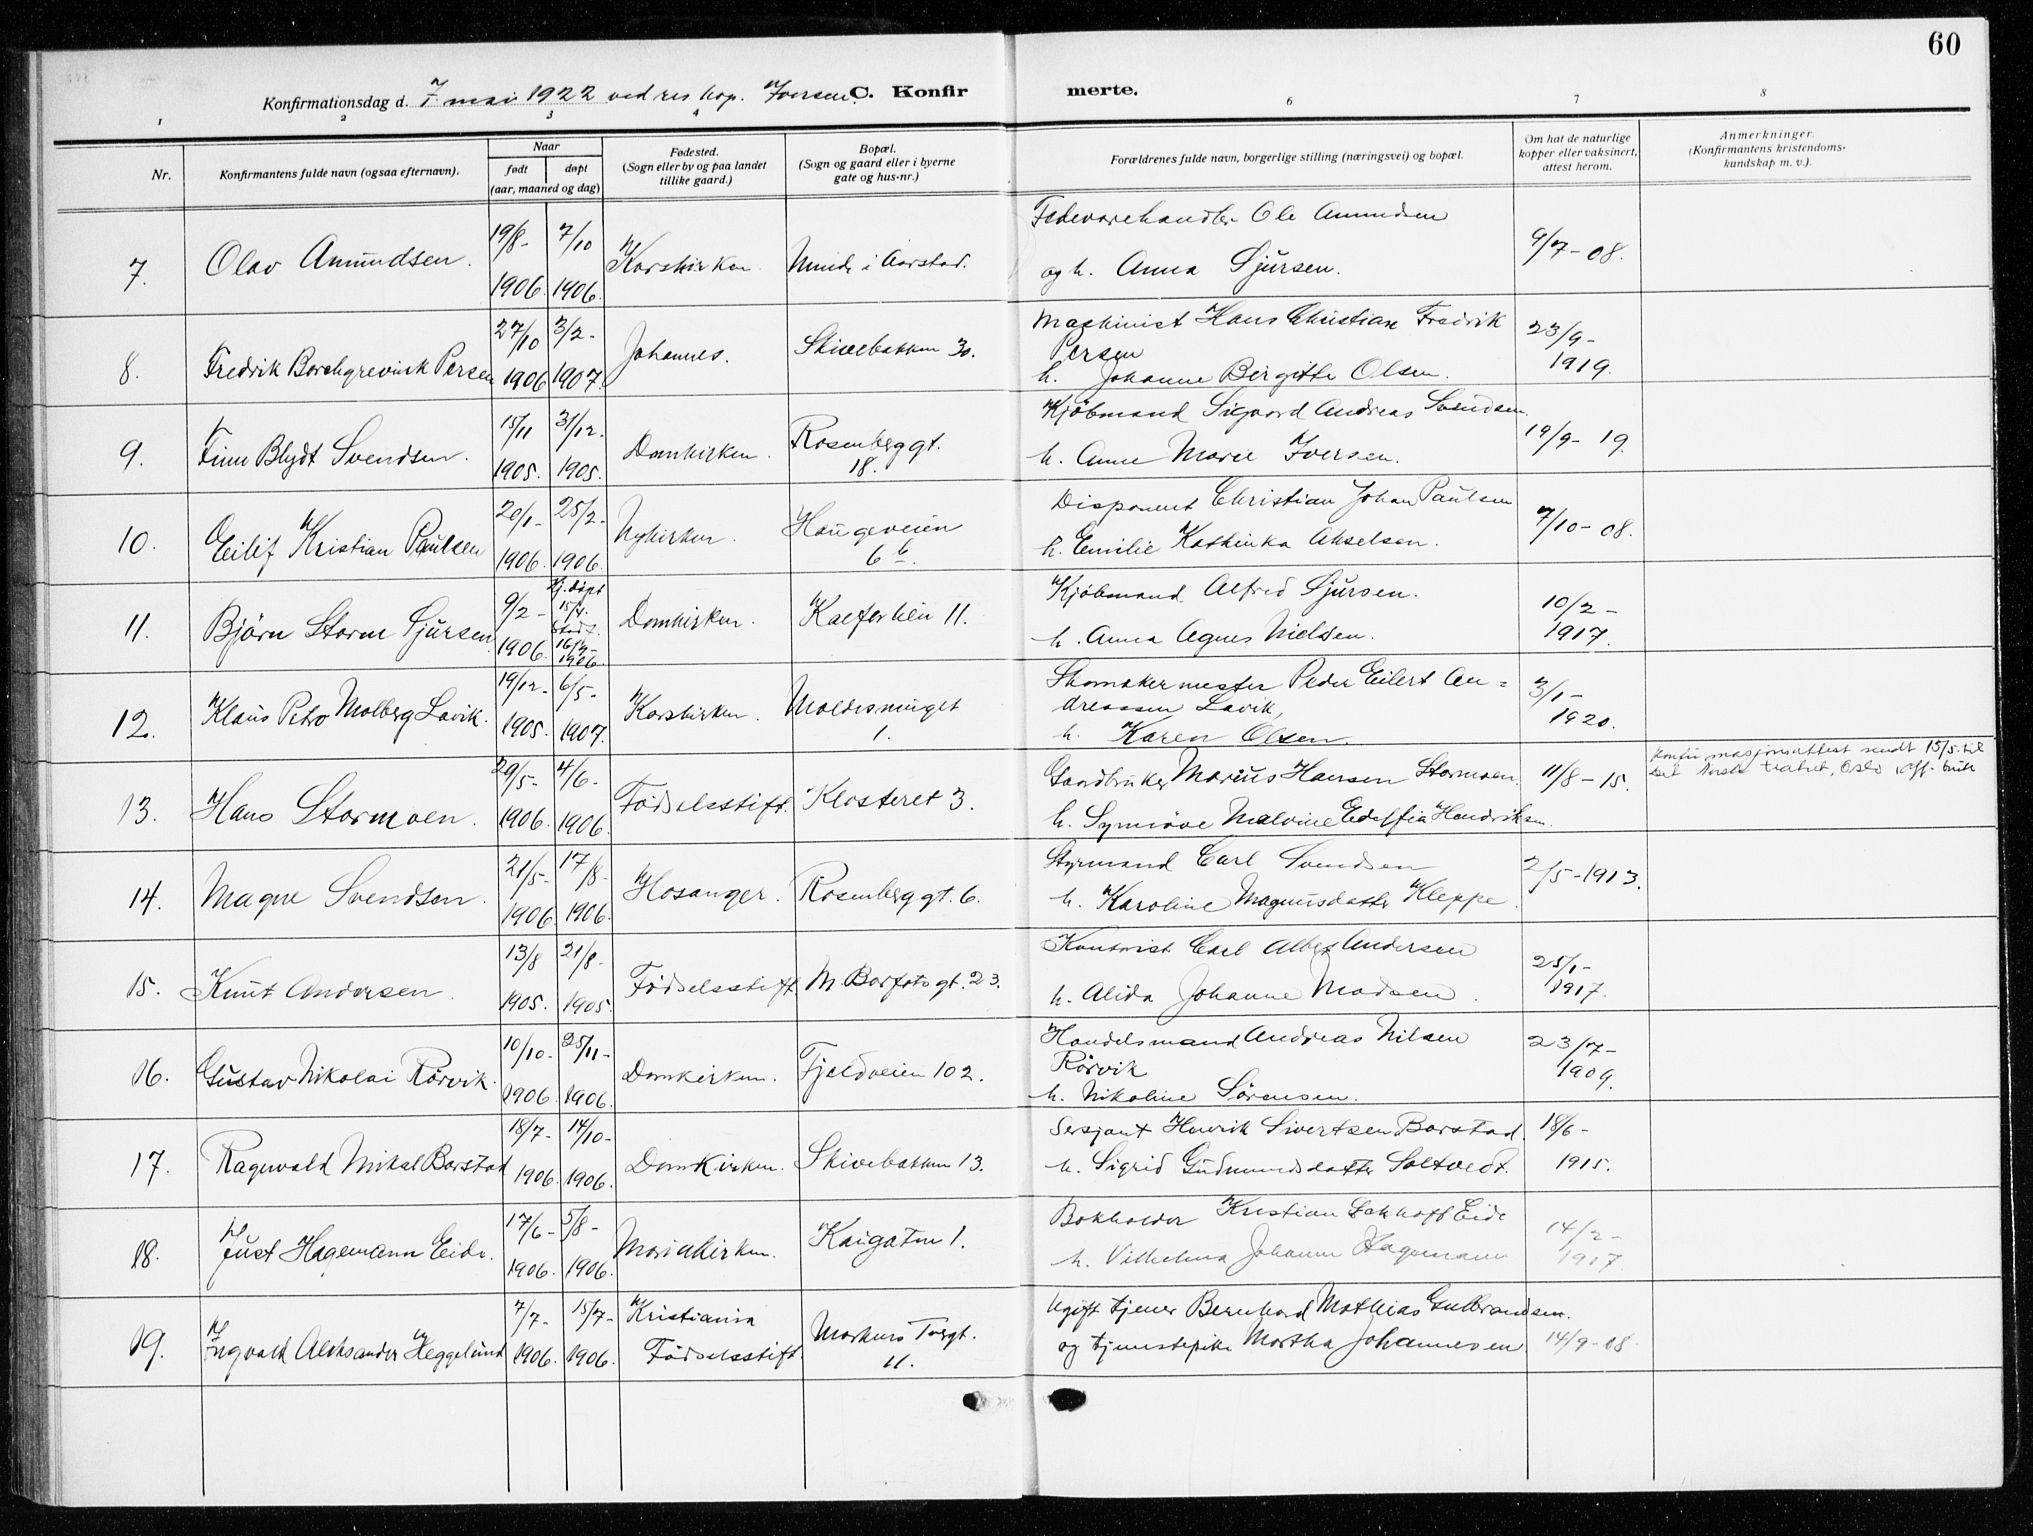 60
Konfirmationsdag d. 7. mai 1922 ved res kap. Iversen. C. Konfir merte.
1 2 3 4 6 7 8
Nr.
Konfirmantens fulde navn (ogsaa efternavn).
Naar
født døpt
(aar, maaned og dag)
Fødested.
(Sogn eller by og paa landet
tillike gaard.)
Bopæl.
(Sogn og gaard eller i byerne
gate og hus-nr.)
Forældrenes fulde navn, borgerlige stilling (næringsvei) og bopæl.
Om hat de naturlige
kopper eller vaksinert,
attest herom.
Anmerkninger.
(Konfirmantens kristendoms-
kundskap m. v.).
7. Olav Amundsen. 19/8- 1906. 7/10 1906. Korskirken. Minde i Aarstad.
Fedevarehandler Ole Amundsen
og h. Anna Sjursen. 9/7-08.
8. Fredrik Borchgrevink Persen 27/10 1906 3/2- 1907. Johannes. Skivebakken 30.
Maskinist Hans Christian Fredrik
Persen
h. Johanne Birgitte Olsen. 23/9- 1919.
9. Finn Blydt Svendsen. 15/11 1905. 31/12. 1905. Domkirken. Rosenberggt. 18.
Kjöbmand Sigvard Andreas Svendsen
h. Anne Marie Iversen. 19/9-19.
10. Eilif Kristian Paulsen 20/1- 1906. 25/2- 1906. Nykirken. Haugeveien 6 b.
Disponent Christian Johan Paulsen
h. Emilie Kathinka Akselsen. 7/10-08.
11. Björn Storm Sjursen. 9/2- 1906. Hj. döpt 15/4. Stadf. 16/9- 1906. Domkirken. Kalfarlien 11.
Kjöbmand Alfred Sjursen.
h. Anna Agnes Nielsen. 10/2- 1917.
12. Klaus Petro Molberg Lavik. 19/12- 1905. 6/5- 1907. Korskirken. Moldesminget 1.
Skomakermester Peder Eilert An=
dreassen Lavik,
h. Karen Olsen. 3/1- 1920.
13. Hans Stormoen. 29/5- 1906. 4/6- 1906. Födselsstift. Klosteret 3.
Gardbruker Marius Hansen Stormoen.
h. Synnöve Malvine Hendriksen. 11/8-15.
Konfirmasjonsattest sendt 15/5. til
Det Norske teatret, Oslo, off. bruk
14. Magne Svendsen. 21/5- 1906. 17/8- 1906. Hosanger. Rosenberggt. 6.
Styrmand Carl Svendsen
h. Karoline Magnusdatter Kleppe. 2/5-1913.
15. Knut Andersen. 13/8 1905. 21/8- 1905. Födselsstift. M. Borfotsgt. 23.
Kontorist Carl Albert Andersen
h. Alida Johanne Madsen. 25/1- 1917.
16. Gustav Nikolai Rörvik. 10/10- 1906. 25/11- 1906. Domkirken. Fjeldveien 102.
Handelsmand Andreas Nilsen
Rörvik
h. Nikoline Sörensen. 23/7- 1909.
17. Ragnvald Mikal Borstad 18/7- 1906. 14/10- 1906. Domkirken. Skivebakken 13.
Sersjant Henrik Sivertsen Borstad.
h. Sigrid Gudmundsdatter Soltvedt. 18/6- 1915.
18. Just Hagemann Eide. 17/6- 1906. 5/8- 1906. Mariakirken. Kaigaten 1.
Bokholder Kristian Eide
h. Vilhelma Johanne Hagemann 14/2- 1917
19. Ingvald Aleksander Heggelund 7/7- 1906. 15/7- 1906. Kristiania Födselsstift. Markus Torgt. 11.
Ugift tjener Bernhard Mathias Gulbrandsen.
og tjenestepike Martha Johannesen 14/9-08.